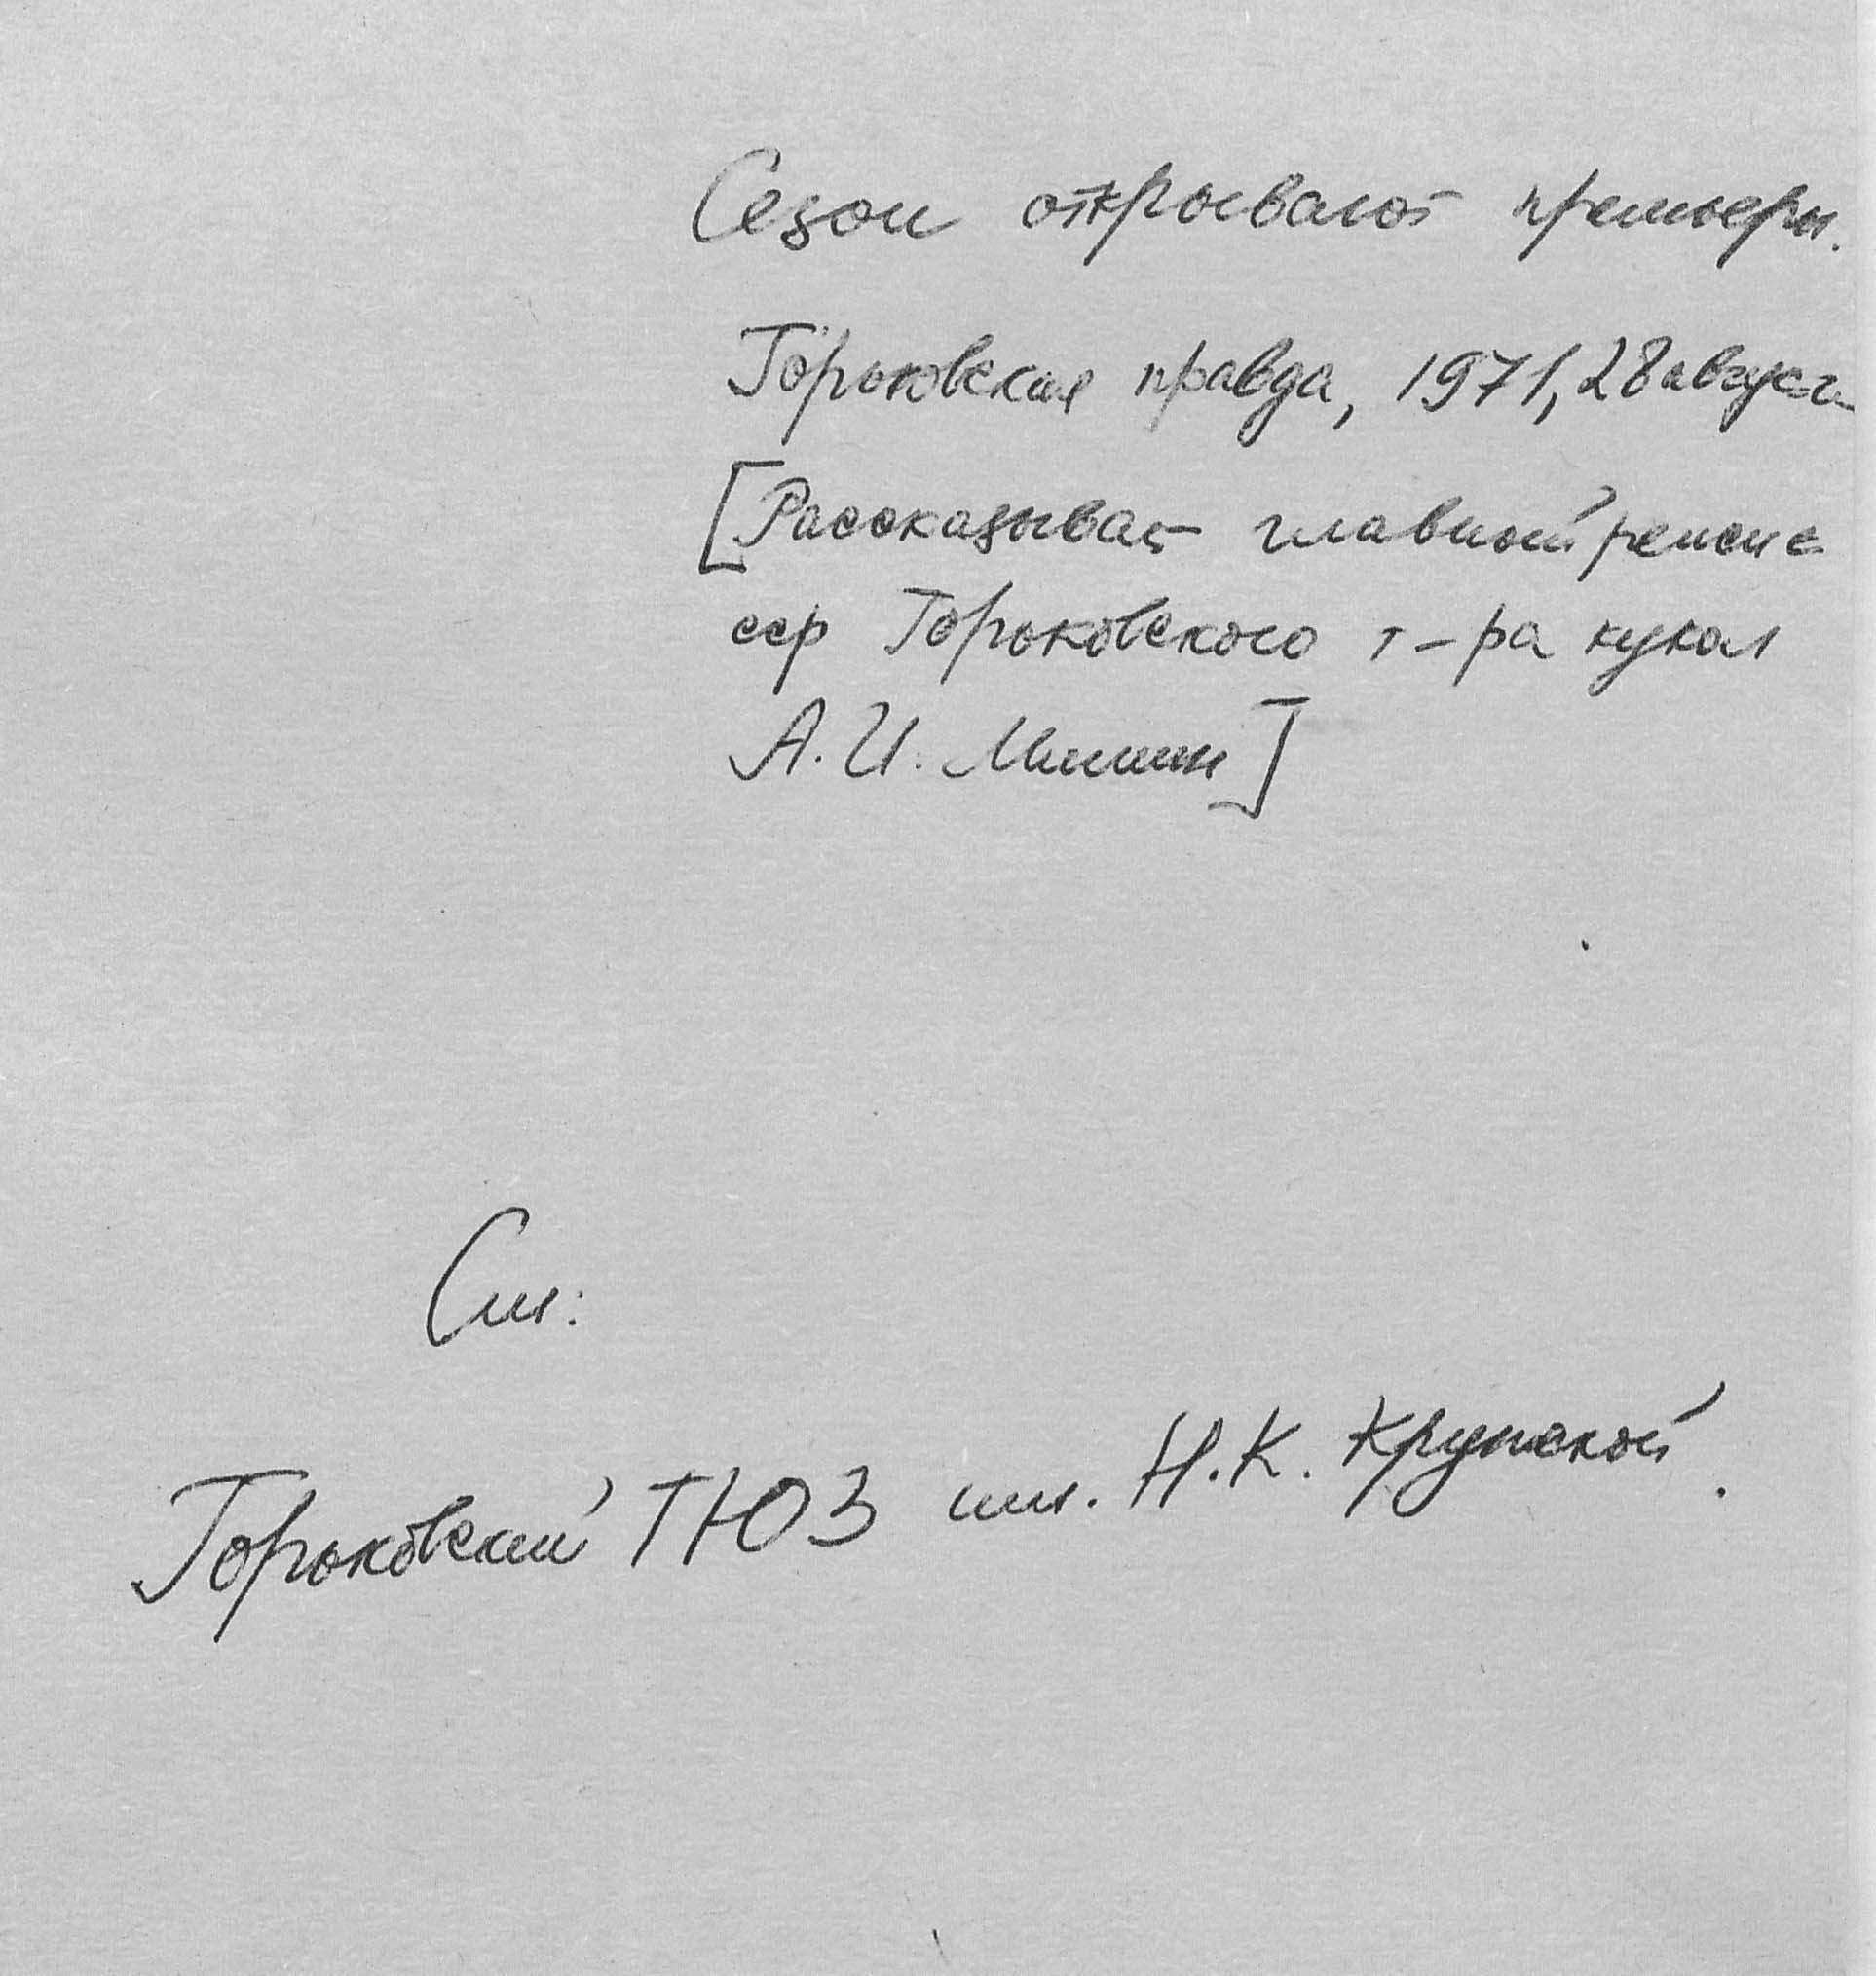 Сезон открывают премьеры.
Горьковская правда, 1971, 28 августа
[Рассказывает главный режис
сёр Горьковского т-ра кукол
А. И. Мишин]
См:
Горьковский ТЮЗ им. Н. К. Крупской.